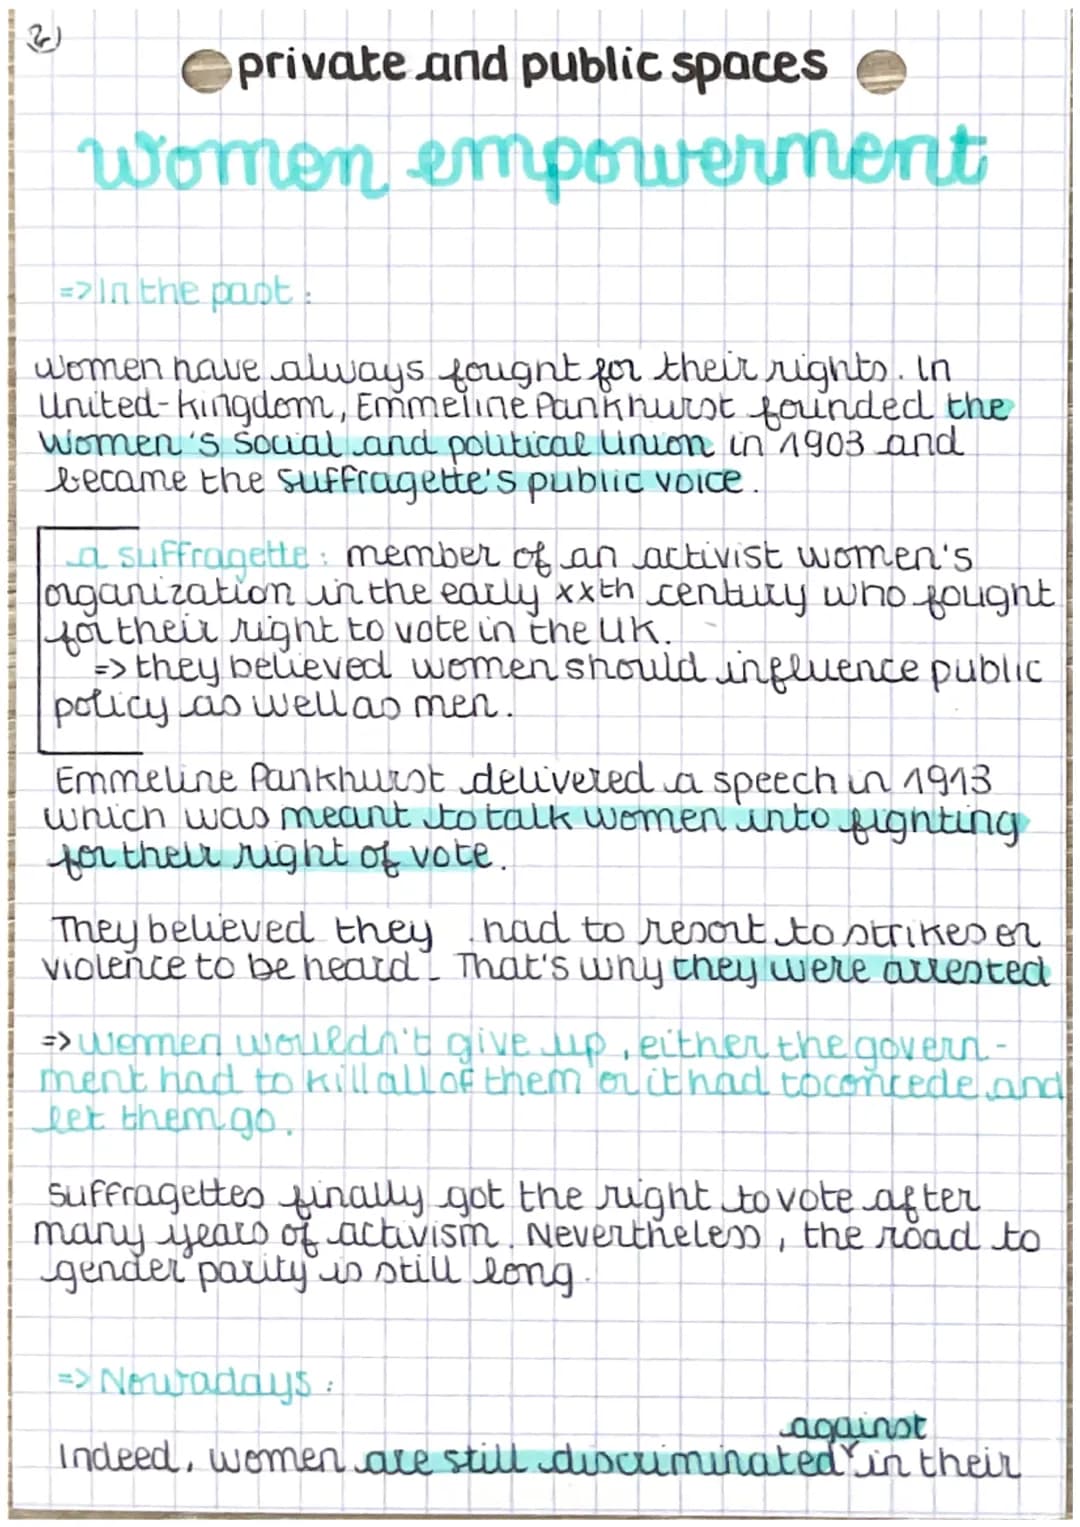 2)
private and public spaces
women empowerment
=> In the past :
Women have always fought for their rights. In
United-kingdom, Emmeline Pankhurst founded the
Women's Social and political Union in 1903 and
became the suffragette's public voice.
a suffragette : member of an activist women's
organization in the early xxth century who fought
for their right to vote in the UK.
=> they believed women should influence public
policy as well as men.
Emmeline Pankhurst delivered a speech in 1913
which was meant to talk women into fighting
for their right of vote.
They believed they had to resort to strikes or
violence to be heard. That's why they were arrested
=> women wouldn't give up, either the govern-
ment had to kill all of them or it had to concede and
let them go.
Suffragettes finally got the right to vote after
many years of activism. Nevertheless, the road to
gender parity is still long.
=> Nowadays :
against
Indeed, women are still discriminated in their